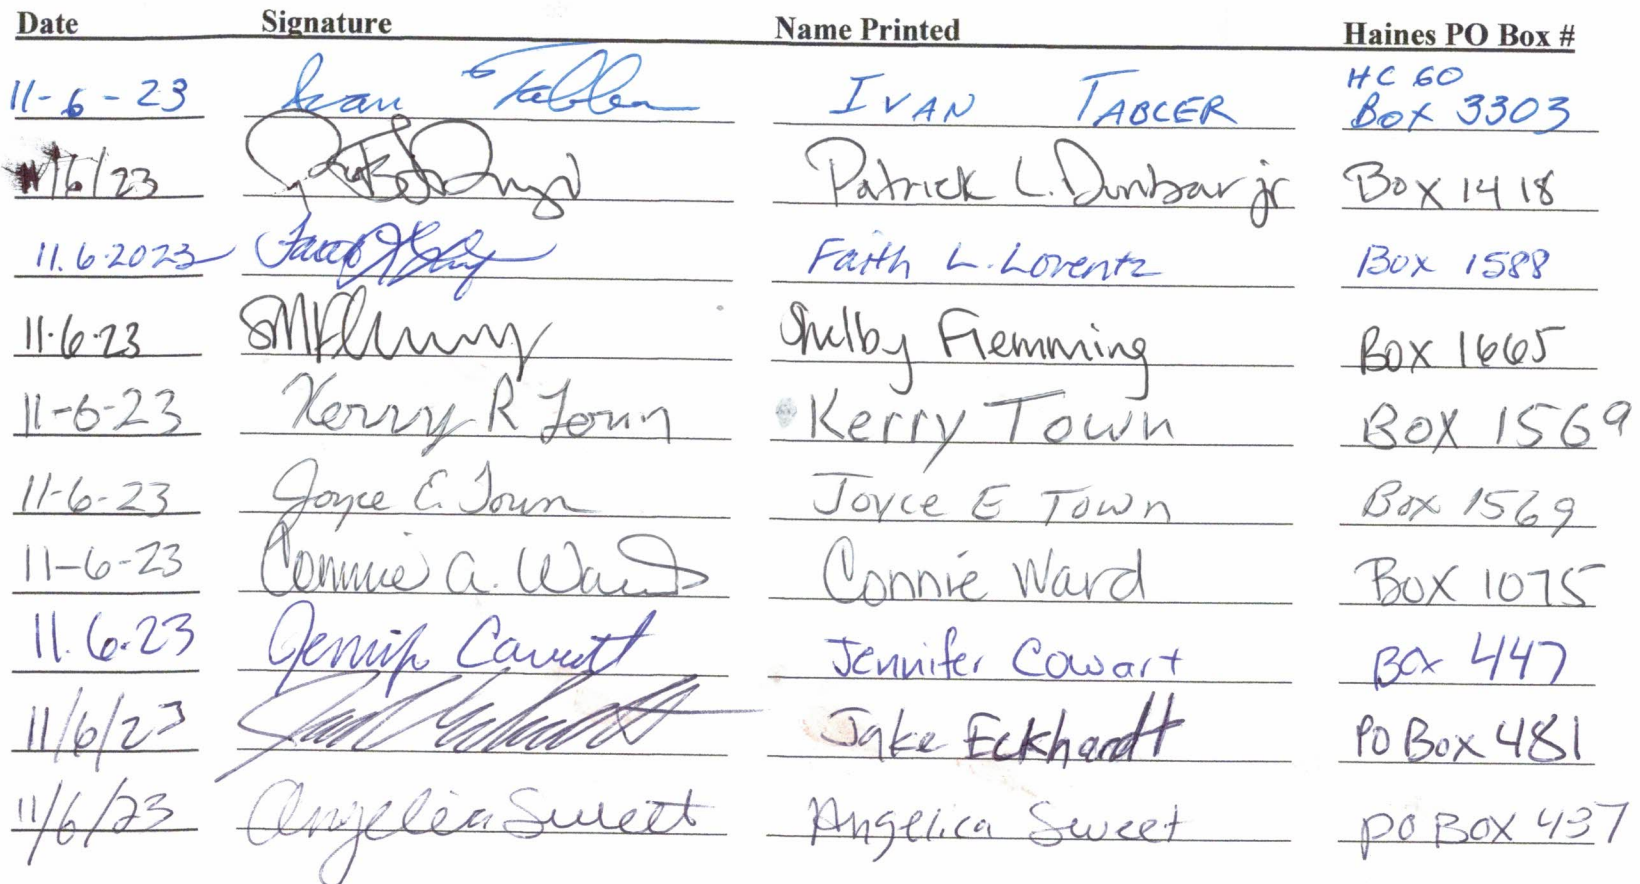 Date Signature Name Printed Haines PO Box #
11-6-23 Ivan Tabler IVAN TABLER HC 60 Box 3303
11/6/23 Patrick L. Dunbar jr Box 1418
11.6.2023 Faith L. Lorentz Box 1588
11.6.23 SMFlemming Shelby Flemming Box 1665
11-6-23 Kerry R Town Kerry Town BOX 1569
11-6-23 Joyce E. Town Joyce E Town Box 1569
11-6-23 Connie A. Ward Connie Ward BOX 1075
11.6.23 Jennifer Cowart Jennifer Cowart Box 447
11/6/23 Jake Eckhardt PO Box 481
11/6/23 Angelica Sweet Angelica Sweet PO BOX 437